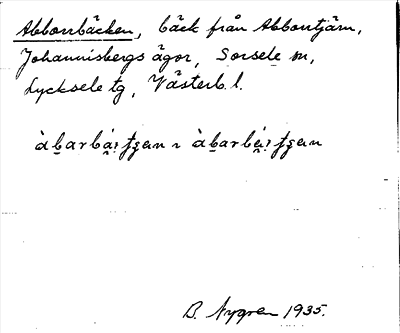 Abborrbäcken, bäck från Abborrtjärn,
Johannisbergs ägor, Sorsele sn,
Lycksele tg, Västerb. l.
B. Nygren 1935.